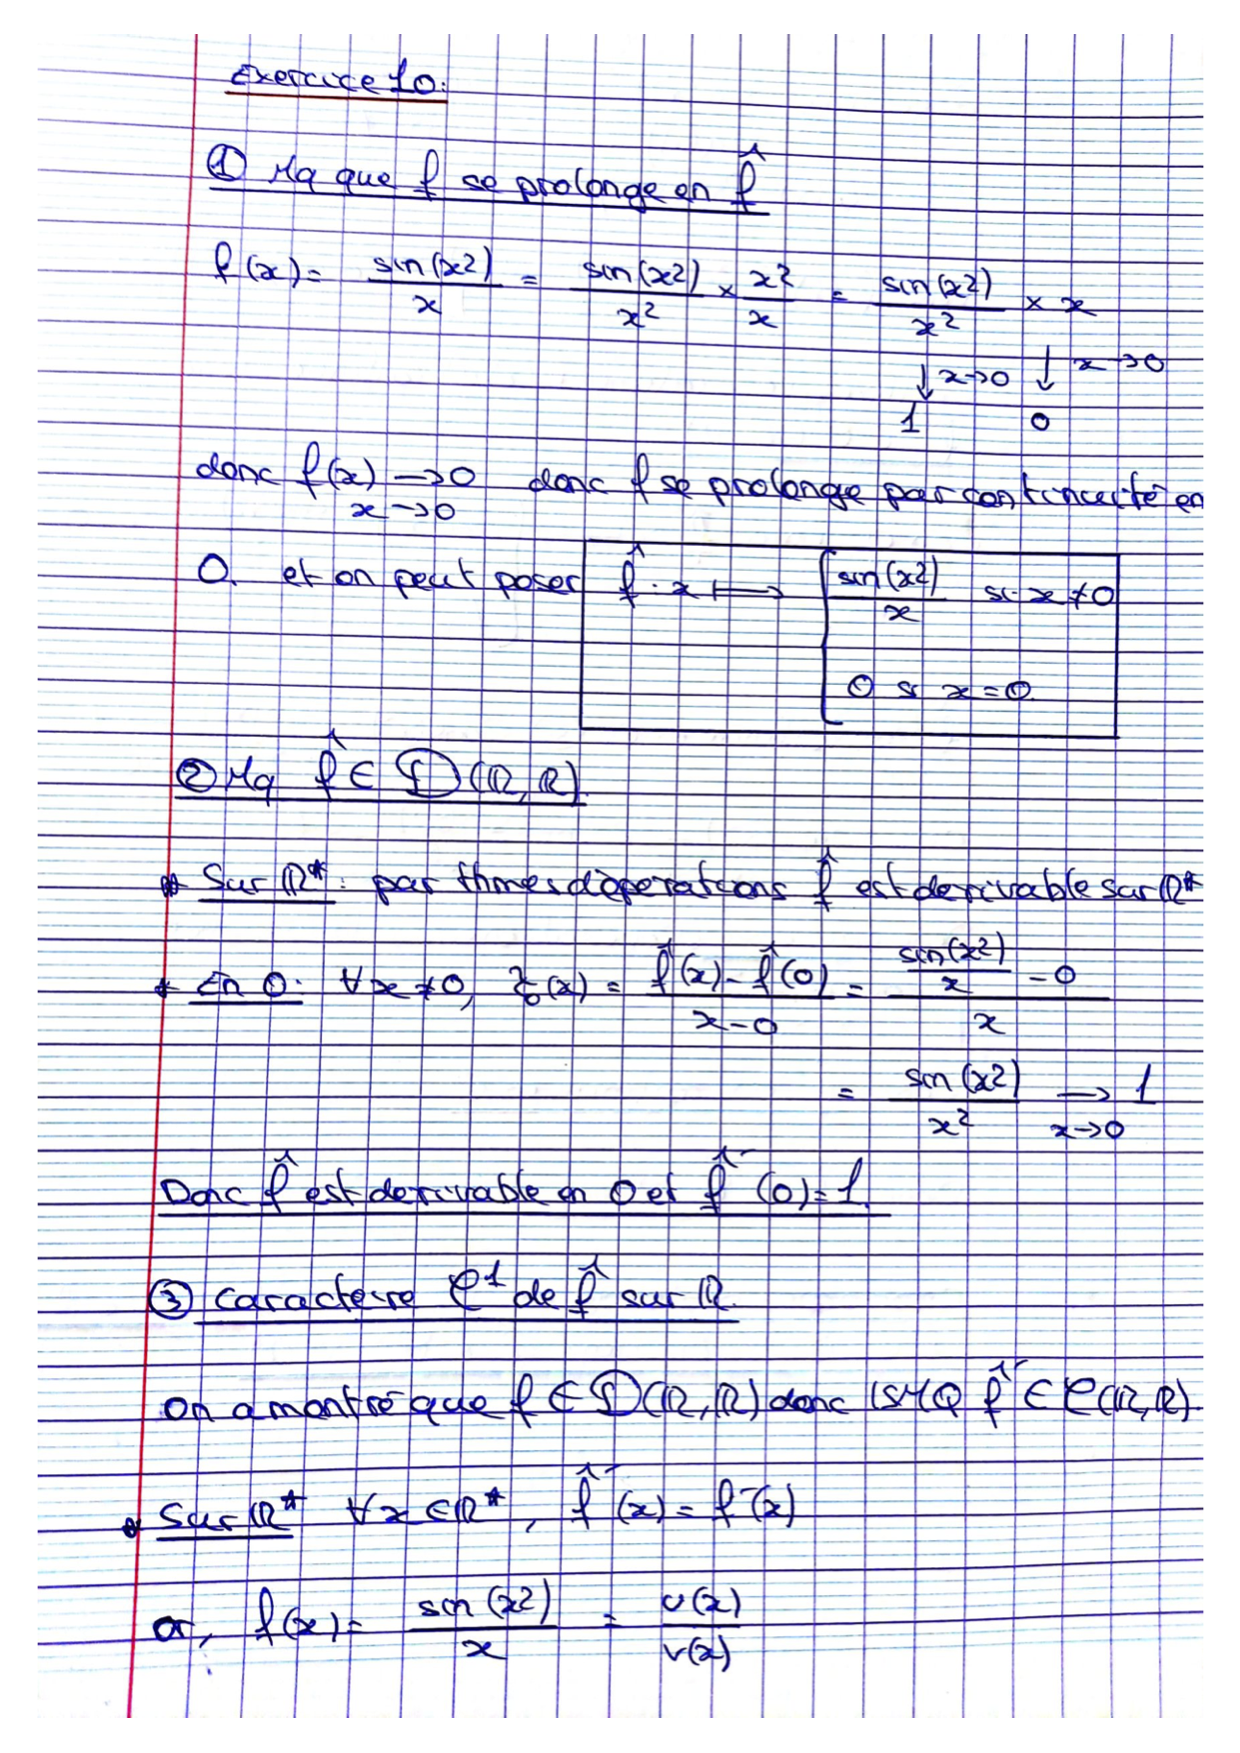 Exercice 10:
① Mq que f se prolonge en f̂
f(x) = sin(x²)/x = sin(x²)/x² × x²/x = sin(x²)/x² × x
↓ x→0 ↓ x→0
1 0
donc f(x) → 0 donc f se prolonge par continuité en
x→0
0. et on peut poser f̂ : x ⟼ { sin(x²)/x si x ≠ 0
0 si x = 0.
② Mq f̂ ∈ D(ℝ, ℝ).
* Sur ℝ* : par thmes d'operations f̂ est derivable sur ℝ*
* En 0 : ∀x ≠ 0, τ₀(x) = (f̂(x) - f̂(0))/(x - 0) = (sin(x²)/x - 0)/x
= sin(x²)/x² → 1
x→0
Donc f̂ est derivable en 0 et f̂'(0) = 1.
③ caractere C¹ de f̂ sur ℝ.
On a montré que f ∈ D(ℝ, ℝ) donc ISMQ f̂' ∈ C(ℝ, ℝ).
* Sur ℝ* ∀x ∈ ℝ*, f̂'(x) = f'(x)
or, f(x) = sin(x²)/x = u(x)/v(x)